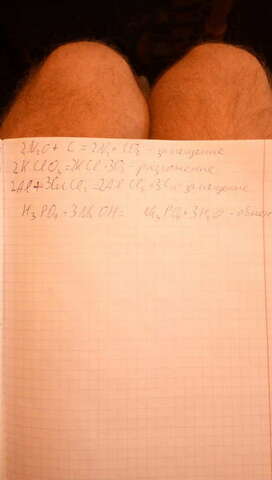 2N₂O + C = 2N₂ + CO₂ - замещение
2KClO₃ = 2KCl + 3O₂ - разложение
2Al + 3CuCl₂ = 2AlCl₃ + 3Cu замещение
H₃PO₄ + 3NaOH = Na₃PO₄ + 3H₂O - обмен